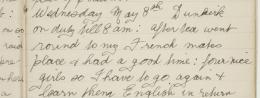 Wednesday May 8th Dunkirk
on duty till 8 am: after tea went
round to my French mates
place & had a good time: four nice
girls so I have to go again &
learn them English in return